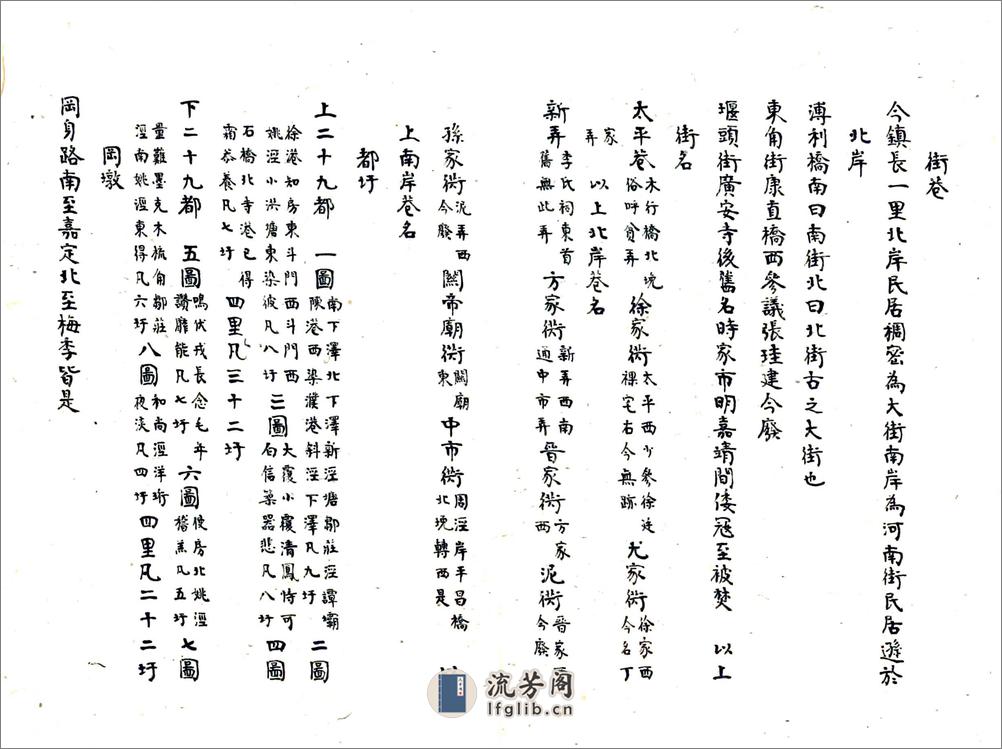 街巷
今鎮長一里北岸民居稠密為大街南岸為河南街民居遜於
北岸
溥利橋南曰南街北曰北街古之大街也
東角街康直橋西參議張珪建今廢
堰頭街廣安寺後舊名時家市明嘉靖間倭寇至被焚 以上
街名
太平巷 木行橋北堍俗呼貧弄 徐家衖 太平西少參徐廷祼宅右今無跡 尤家衖 徐家西今名丁
家弄 以上北岸巷名
新弄 李氏祠東首舊無此弄 方家衖 新弄西南通中市弄 晉家衖 方家西 泥衖 晉家今廢
孫家衖 泥弄西今廢 關帝廟衖 關廟東 中市衖 周涇岸平昌橋北堍轉西是 以
上南岸巷名
都圩
上二十九都 一圖 南下澤北下澤新涇塘鄒莊涇譚壩陳港西染濮港斜涇下澤凡九圩 二圖
徐港知房東斗門西斗門西姚涇小洪塘東染彼凡八圩 三圖 大覆小覆清鳳恃可向信藥器悲凡八圩 四圖
石橋北寺港已得霜恭養凡七圩 四里凡三十二圩
下二十九都 五圖 鳴伐戎長念毛年讚靡能凡七圩 六圖 使房北姚涇稽羔凡五圩 七圖
量難墨克木梳角鄒莊涇南姚涇東得凡六圩 八圖 和尚涇洋珩夜淡凡四圩 四里凡二十二圩
岡墩
岡身路南至嘉定北至梅李皆是
流芳阁
lfglib.cn